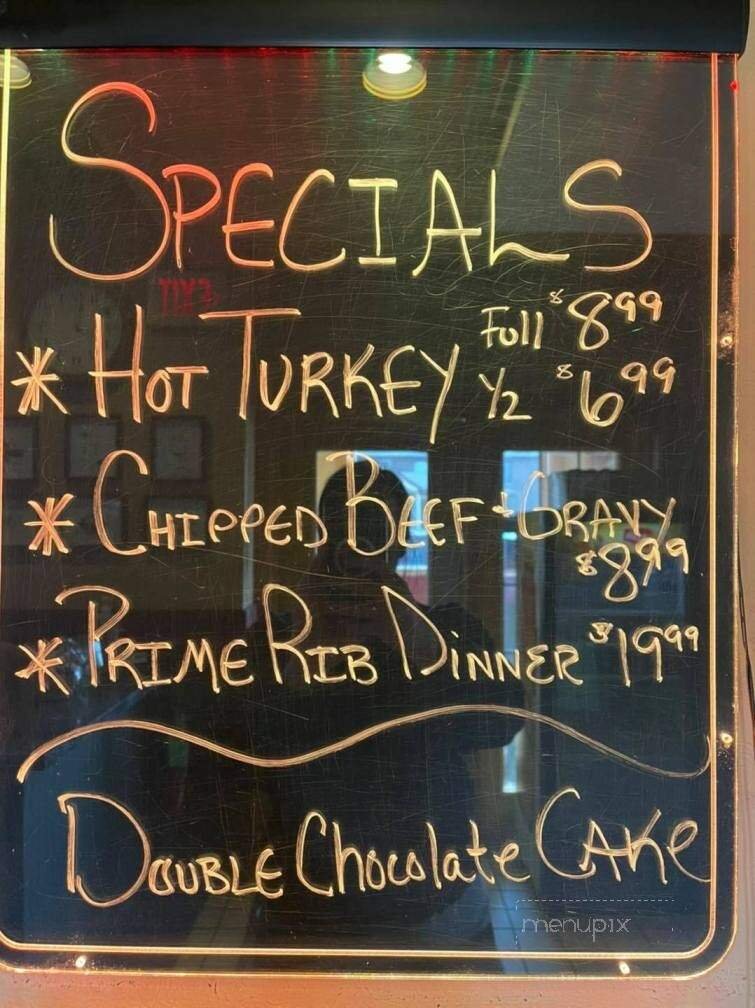 SPECIALS
* HOT TURKEY Full $8.99
1/2 $6.99
* CHIPPED BEEF + GRAVY
$8.99
* PRIME RIB DINNER $19.99
DOUBLE Chocolate CAKe
menupix
EXIT